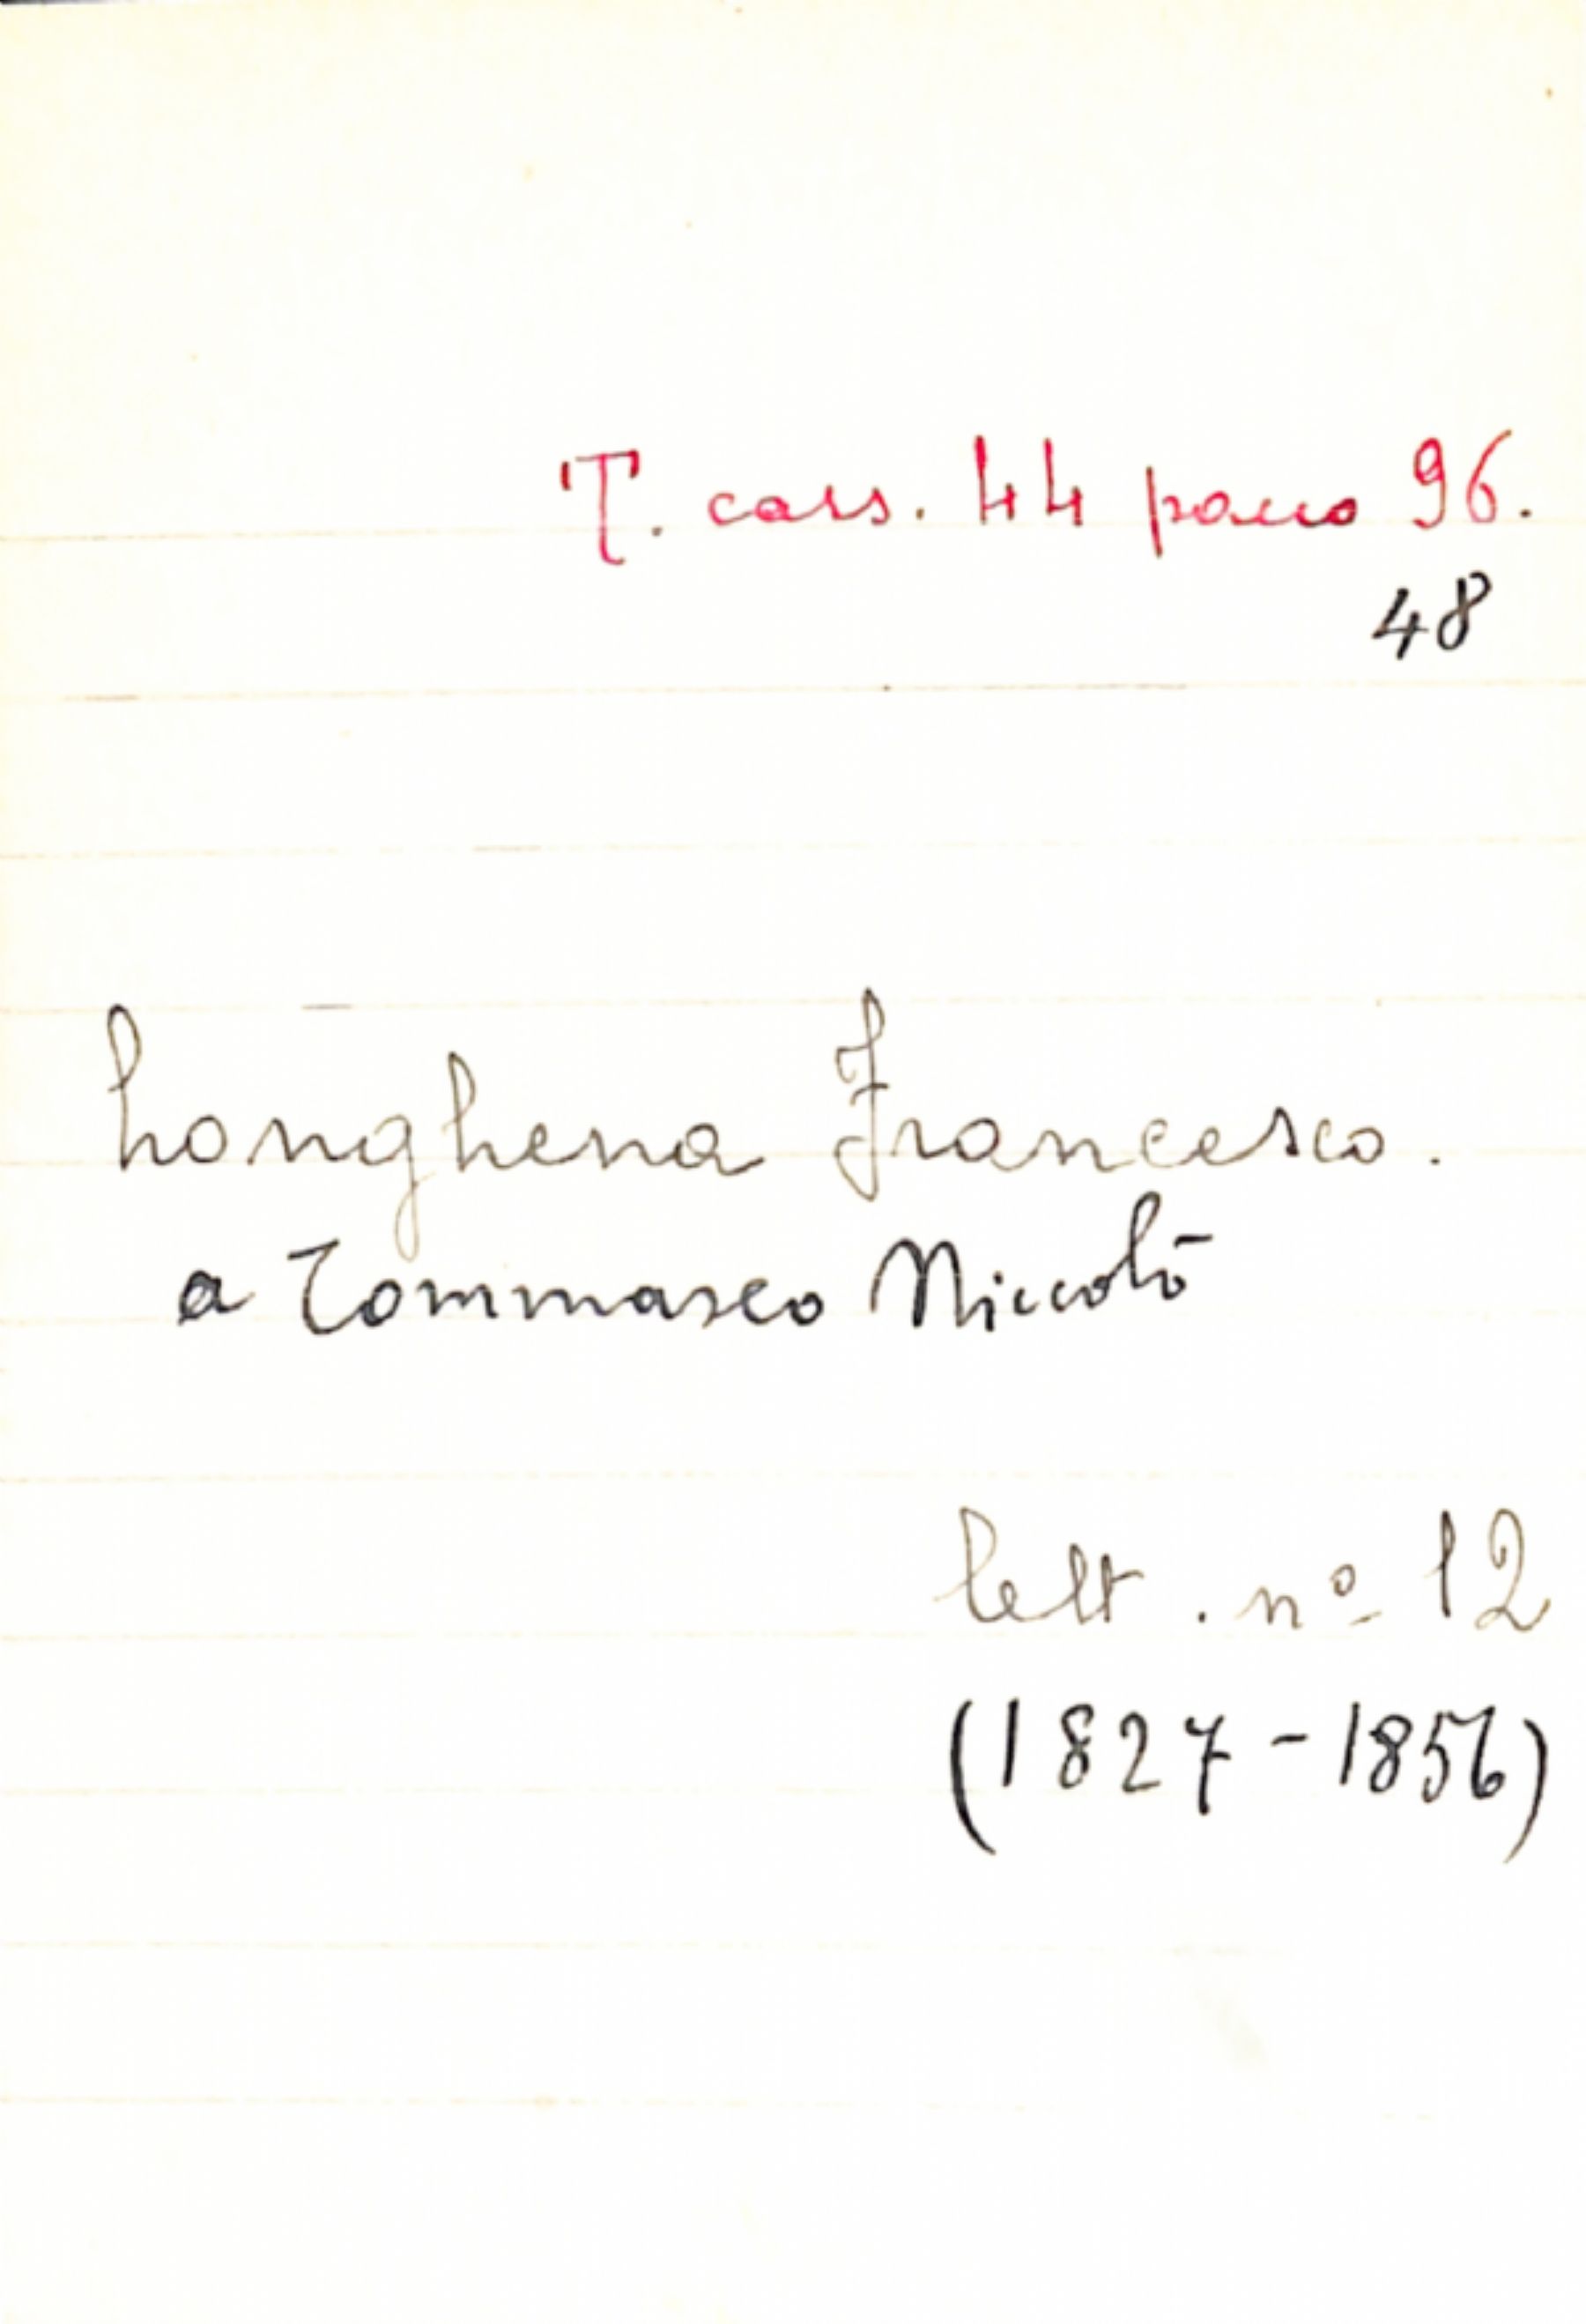 T. cass. 44 pacco 96.
48
Longhena Francesco.
a Tommaseo Niccolò
lett. nº 12
(1827-1856)